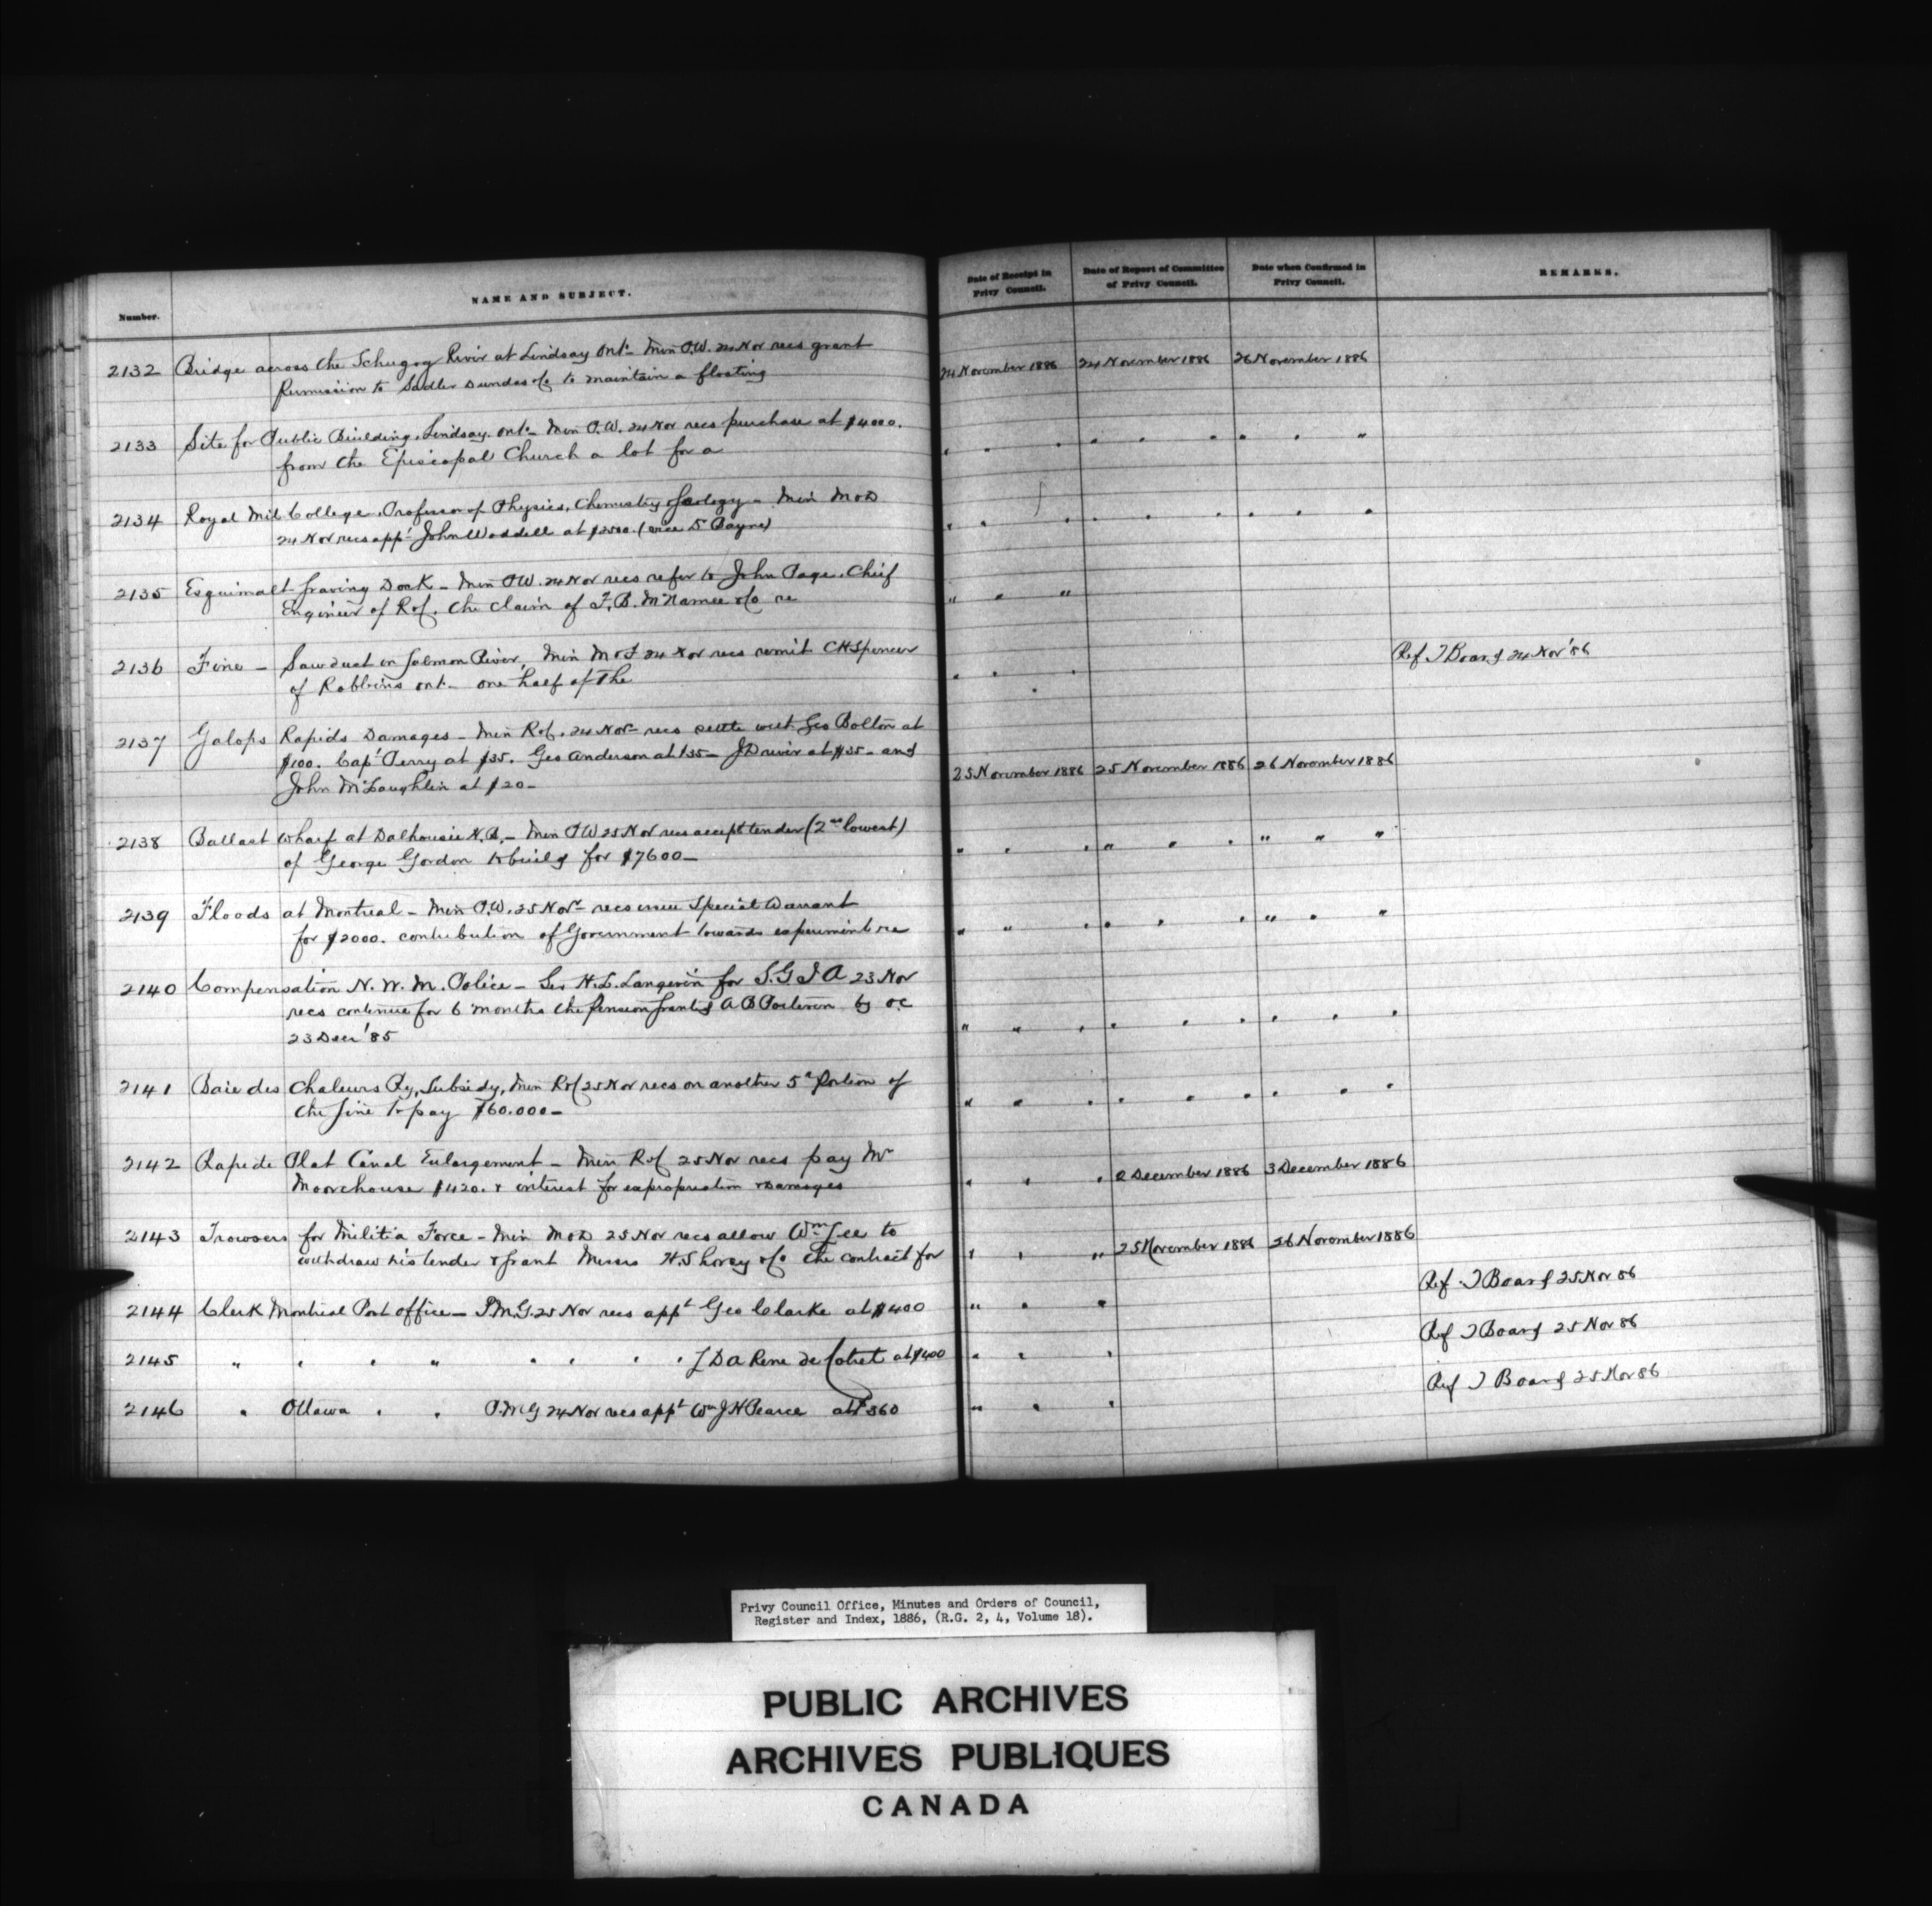 Number.
NAME AND SUBJECT.
Date of Receipt in Privy Council.
Date of Report of Committee of Privy Council.
Date when Confirmed in Privy Council.
REMARKS.
2132 Bridge across the Schugog River at Lindsay Ont. Min P.W. 24 Nor recs grant 24 November 1886 24 November 1886 26 November 1886
Permission to Sadler Dundas &Co to maintain a floating
2133 Site for Public Building, Lindsay. Ont. Min P.W. 24 Nor recs purchase at $4000. " " " " " " " " "
from the Episcopal Church a lot for a
2134 Royal Mil College, Professor of Physics, Chemistry & Geology - Min M&D " " " " " " " " "
24 Nor recs appt John Waddell at $2500. (vice Dr Bayne)
2135 Esquimalt Graving Dock - Min P.W. 24 Nor recs refer to John Page, Chief " " "
Engineer of R&C. the claim of F. B. McNamee &Co re
2136 Fine - Sawdust in Salmon River, Min M&F 24 Nor recs remit C H Spencer " " " Ref T Board 24 Nov '86
of Robbins Ont - one half of the
2137 Galops Rapids Damages - Min R&C. 24 Nor recs settle with Geo Bolton at
$100. Capt Perry at $35. Geo Anderson at $35 - J Driver at $35 - and 25 November 1886 25 November 1886 26 November 1886
John McLaughlin at $20 -
2138 Ballast Wharf at Dalhousie N.B. - Min P W 25 Nor recs accept tender (2nd lowest) " " " " " " " " "
of George Gordon to build for $7600 -
2139 Floods at Montreal - Min P.W. 25 Nor recs issue Special Warrant " " " " " " " "
for $2000. contribution of Government towards experiments re
2140 Compensation N. W. M. Police - H. L. Langevin for S. G I A 23 Nor
recs continue for 6 months the pension granted A B by OC " " " " " " " " "
23 Decr '85
2141 Baie des Chaleurs Ry, Subsidy, Min R&C 25 Nor recs on another 5th portion of " " " " " " " " "
the line to pay $60.000 -
2142 Rapide Plat Canal Enlargement - Min R&C 25 Nor recs pay Mr " " " 2 December 1886 3 December 1886
Moorehouse $420. & interest for expropriation & Damages
2143 Trowsers for Militia Force - Min M&D 25 Nor recs allow Wm Lee to " " " 25 November 1886 26 November 1886
withdraw his tender & grant Messrs H. Shorey &Co the contract for
2144 Clerk Montreal Post Office - P.M.G. 25 Nor recs appt Geo Clarke at $400 " " " Ref T Board 25 Nor 86
2145 " " " " " " " " J D A Rene de Cotret at $400 " " " Ref T Board 25 Nor 86
2146 " Ottawa " " P.M.G 24 Nor recs appt Wm J H Pearce at $360 " " " Ref T Board 25 Nor 86
Privy Council Office, Minutes and Orders of Council,
Register and Index, 1886, (R.G. 2, 4, Volume 18).
PUBLIC ARCHIVES
ARCHIVES PUBLIQUES
CANADA